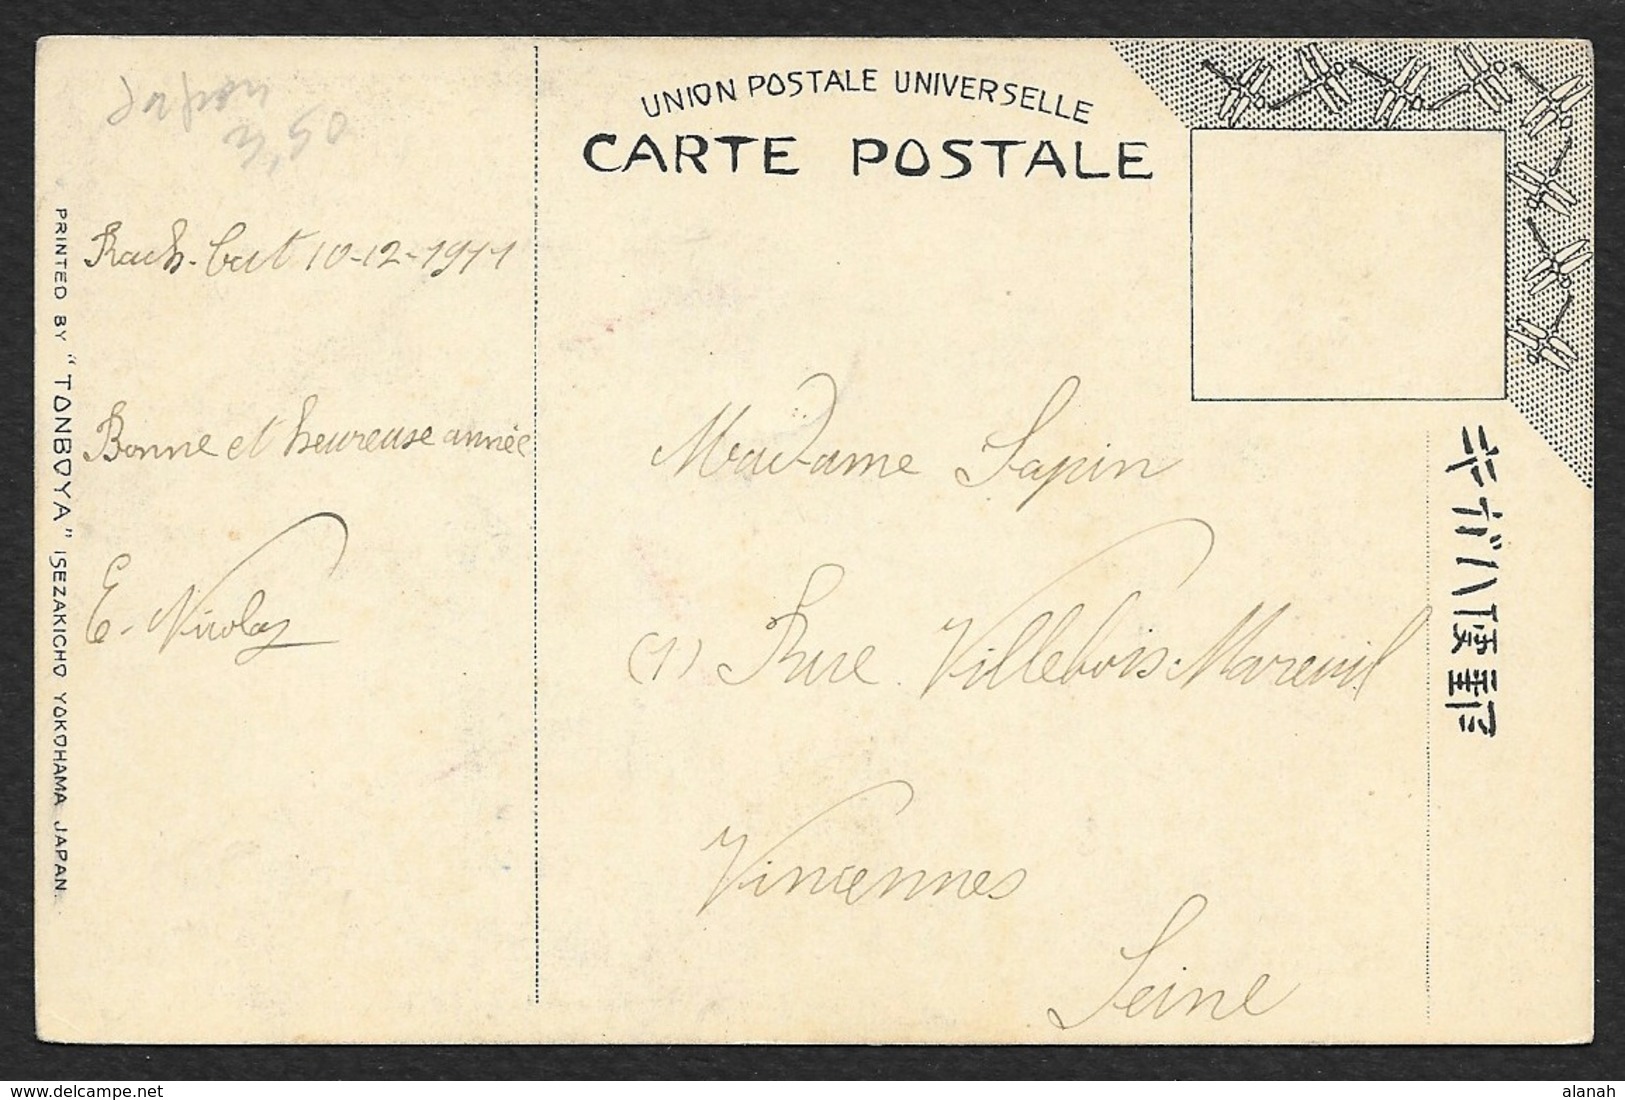 Japon
3,50
UNION POSTALE UNIVERSELLE
CARTE POSTALE
Rach-Cat 10-12-1911
Bonne et heureuse année
E. Nicolas
Madame Sapin
(1) Rue Villebois-Mareuil
Vincennes
Seine
PRINTED BY "TONBOYA" ISEZAKICHO YOKOHAMA JAPAN.
郵便ハガキ
delcampe.net
alanah